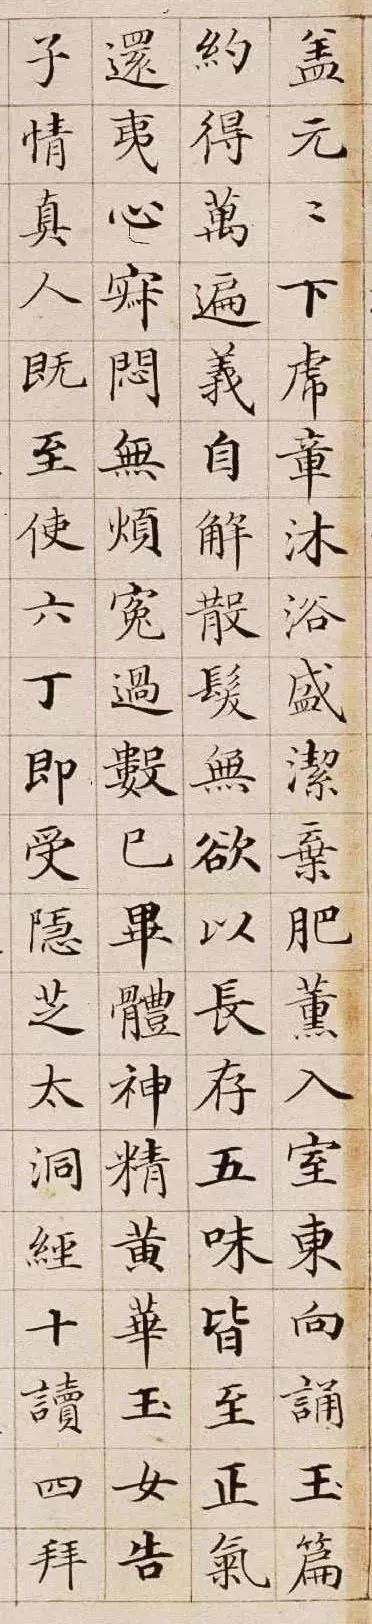 盖元〻下虎章沐浴盛潔棄肥薰入室東向誦玉篇
約得萬遍義自解散髮無欲以長存五味皆至正氣
還夷心寂悶無煩寃過數已畢體神精黃華玉女告
子情真人既至使六丁即受隱芝太洞經十讀四拜